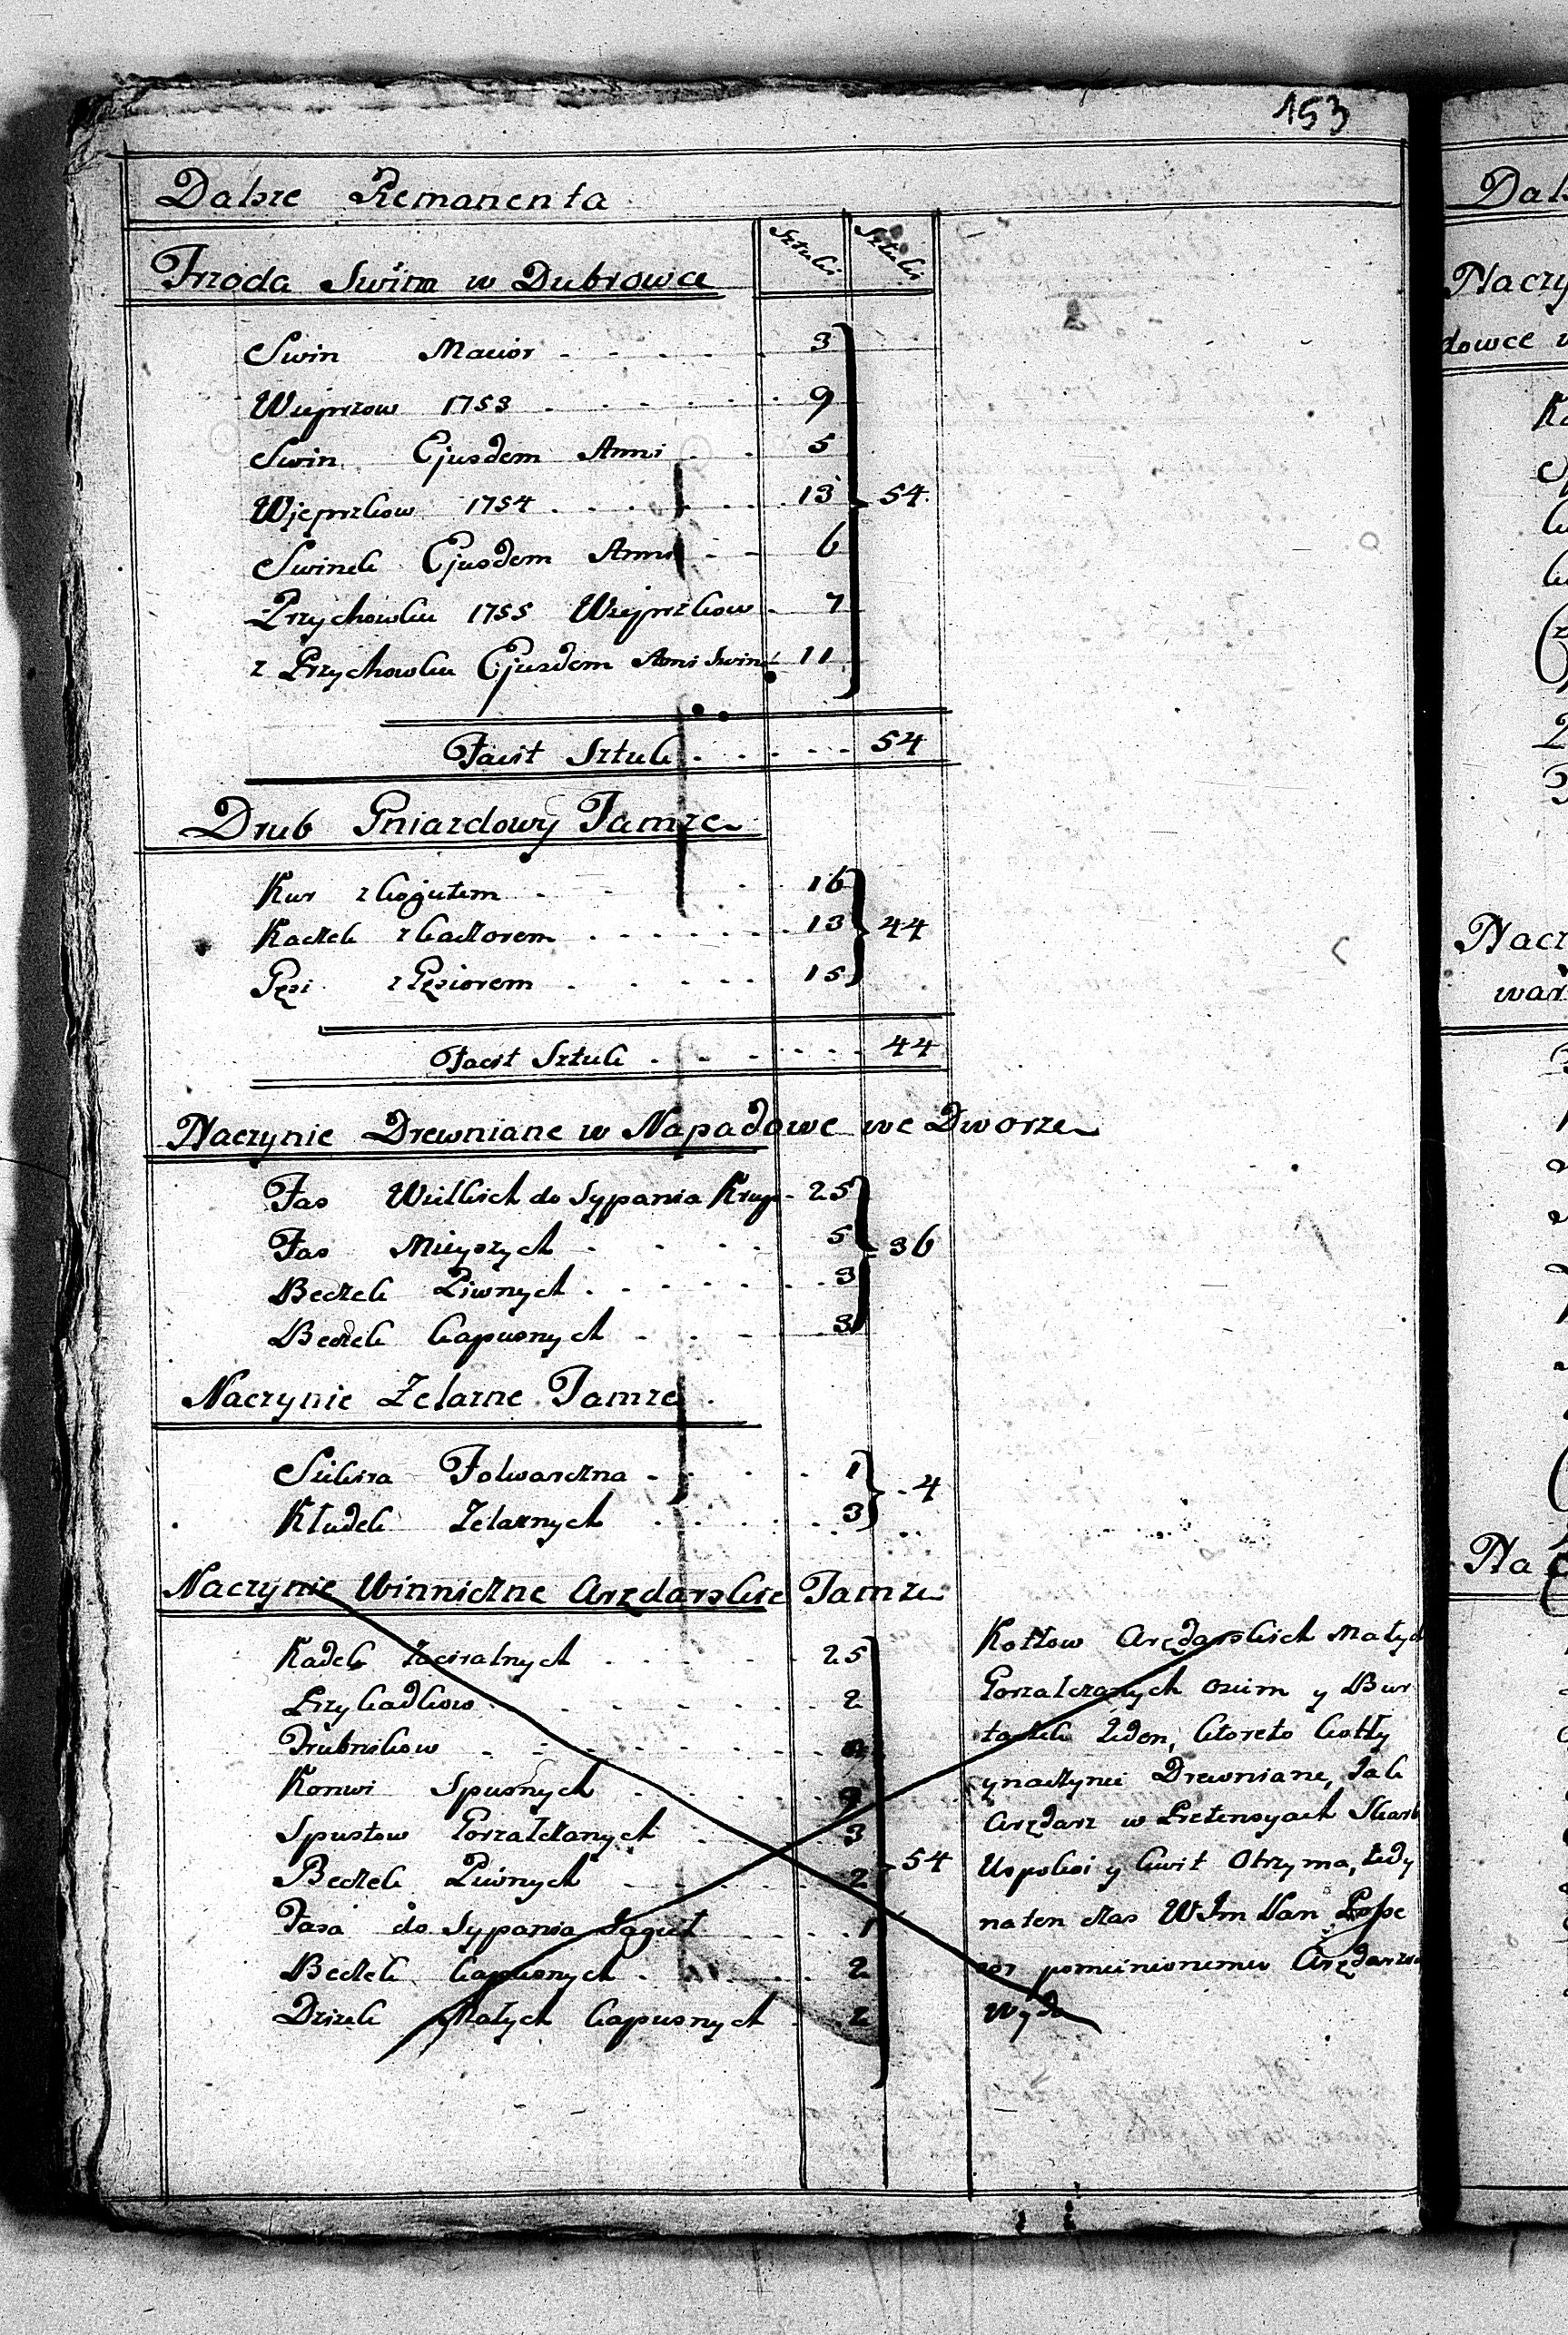 153
Dalsze Remanenta
Sztuki Sztuki
Trzoda Swina w Dubrowce
Swin Macior 3
Wieprzow 1753 9
Swin Ejusdem Anni 5
Wjeprzkow 1754 13 54
Swinek Ejusdem Anni 6
Przychowku 1755 Wieprzkow 7
z Przychowku Ejusdem Anni Swin 11
Facit Sztuk 54
Drub Gniazdowy Tamze
Kur z kogutem 16
Kaczek z kaczorem 13 44
Gęsi z Gęsiorem 15
Facit Sztuk 44
Naczynie Drewniane w Napadowce we Dworze
Fas Wielkich do Sypania Krup 25
Fas Mieyszych 5 36
Beczek Piwnych 3
Beczek kapusnych 3
Naczynie Zelazne Tamze
Sickira Folwarczna 1 4
Kłudek Zelaznych 3
Naczynie Winniczne Arędarskie Tamze
Kadek Zacieralnych 25
Przykadkow 2
Drubnikow
Konwi Spusnych 9
Spustow Gorzałczanych 3
Beczek Piwnych 2 54
Fasa do Sypania Jagieł 1
Beczek kapusnych 2
Dziżek Małych kapusnych 2
Kotłow Arędarskich Małych
Gorzalczanych osim y Bur
taczek Jeden, ktoreto kotły
ynaczynie Drewniane, Jak
Arędarz w Pretensyach Skarb
Uspokoi y kwit Otrzyma, tedy
naten czas WJm Pan Posse
sor pomienionemu Arędarzo
Wyda
Dals
Naczy
dowce w
Nacz
war
Na